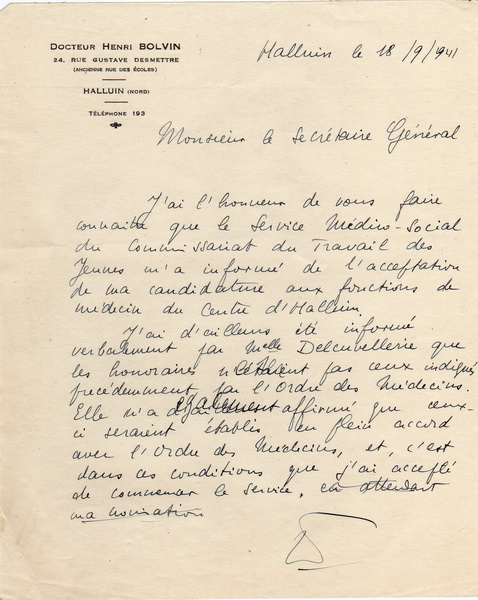 DOCTEUR HENRI BOLVIN
24, RUE GUSTAVE DESMETTRE
(ANCIENNE RUE DES ÉCOLES)
HALLUIN (NORD)
TÉLÉPHONE 193
Halluin le 18/9/941
Monsieur le Secrétaire Général
J'ai l'honneur de vous faire
connaitre que le Service Médico-Social
du Commissariat du Travail des
Jeunes m'a informé de l'acceptation
de ma candidature aux fonctions de
médecin du Centre d'Halluin.
J'ai d'ailleurs été informé
verbalement par Melle Delcuvellerie que
les honoraires n'étaient pas ceux indiqués
précédemment par l'Ordre des Médecins.
Elle m'a également affirmé que ceux-
ci seraient établis en plein accord
avec l'Ordre des Médecins, et, c'est
dans ces conditions que j'ai accepté
de commencer le service, en attendant
ma nomination